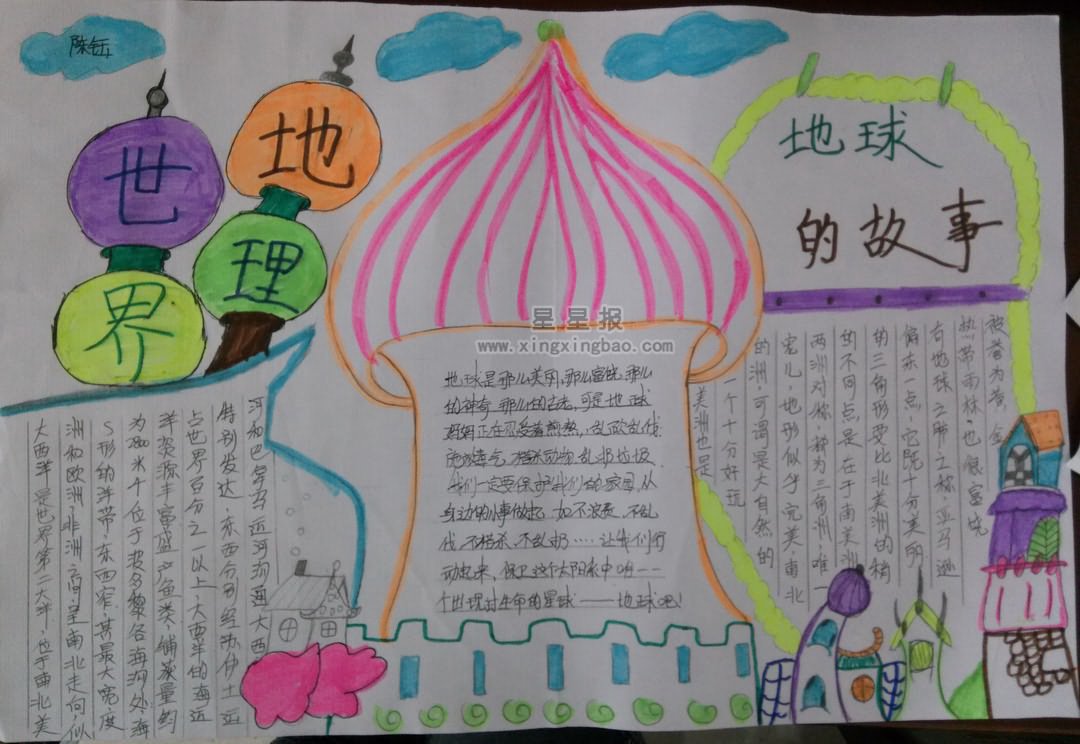 陈钰
世界
地理
地球
的故事
星星报
www.xingxingbao.com
大西洋是世界第二大洋,位于南北美
洲和欧洲,非洲之间,呈南北走向,似
S形的洋带,东西窄,其最大宽度
为2800米,个位于波多黎各海沟处,海
洋资源丰富,盛产鱼类,捕获量约
占世界百分之一以上,大西洋的海运
特别发达,东西分别经苏伊士运
河和巴拿马运河沟通大西
地球是那么美丽,那么富饶,那么
的神奇,那么的古老,可是地球
妈妈正在忍受着煎熬,乱砍乱伐
放毒气、捕杀动物、乱扔垃圾
我们一定要保护我们的家园,从
身边的小事做起,如不浪费、不乱
伐、不捕杀、不乱扔……让我们行
动起来,保卫这个太阳系中唯一一
个出现过生命的星球——地球吧!
美洲也是
一个十分好玩
的洲,可谓是大自然的
宠儿,地形似乎完美,南北
两洲对称,称为三角洲,唯一
的不同点是在于南美洲
的三角形要比北美洲的稍
偏东一点,它既十分美丽
有地球之肺之称,亚马逊
热带雨林,也很富饶
被誉为黄金